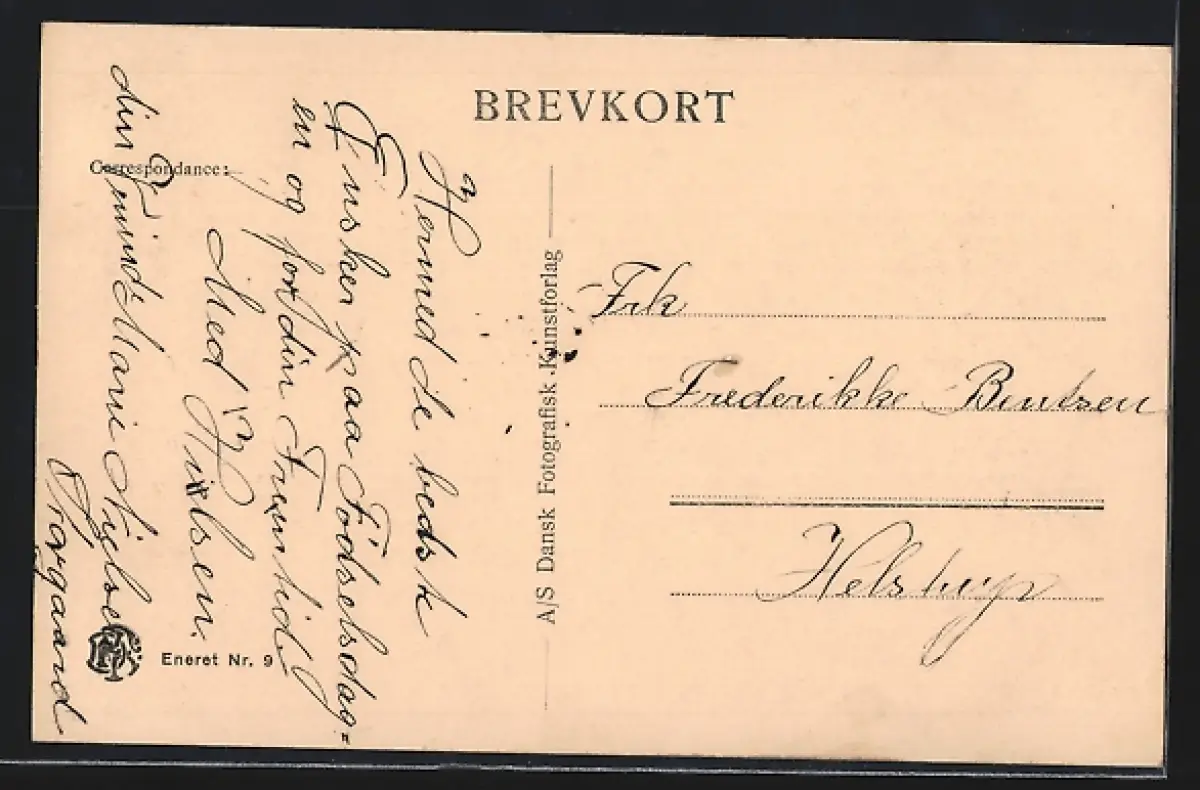 BREVKORT
Correspondance:
Hermed de bedste
Ønsker paa Födselsdag-
en og for din Fremtid
Med Hilsen.
din Venind Marie Nielsen
Norgaard
A/S Dansk Fotografisk Kunstforlag
Eneret Nr. 9
Frk
Frederikke Bentzen
Helstrup